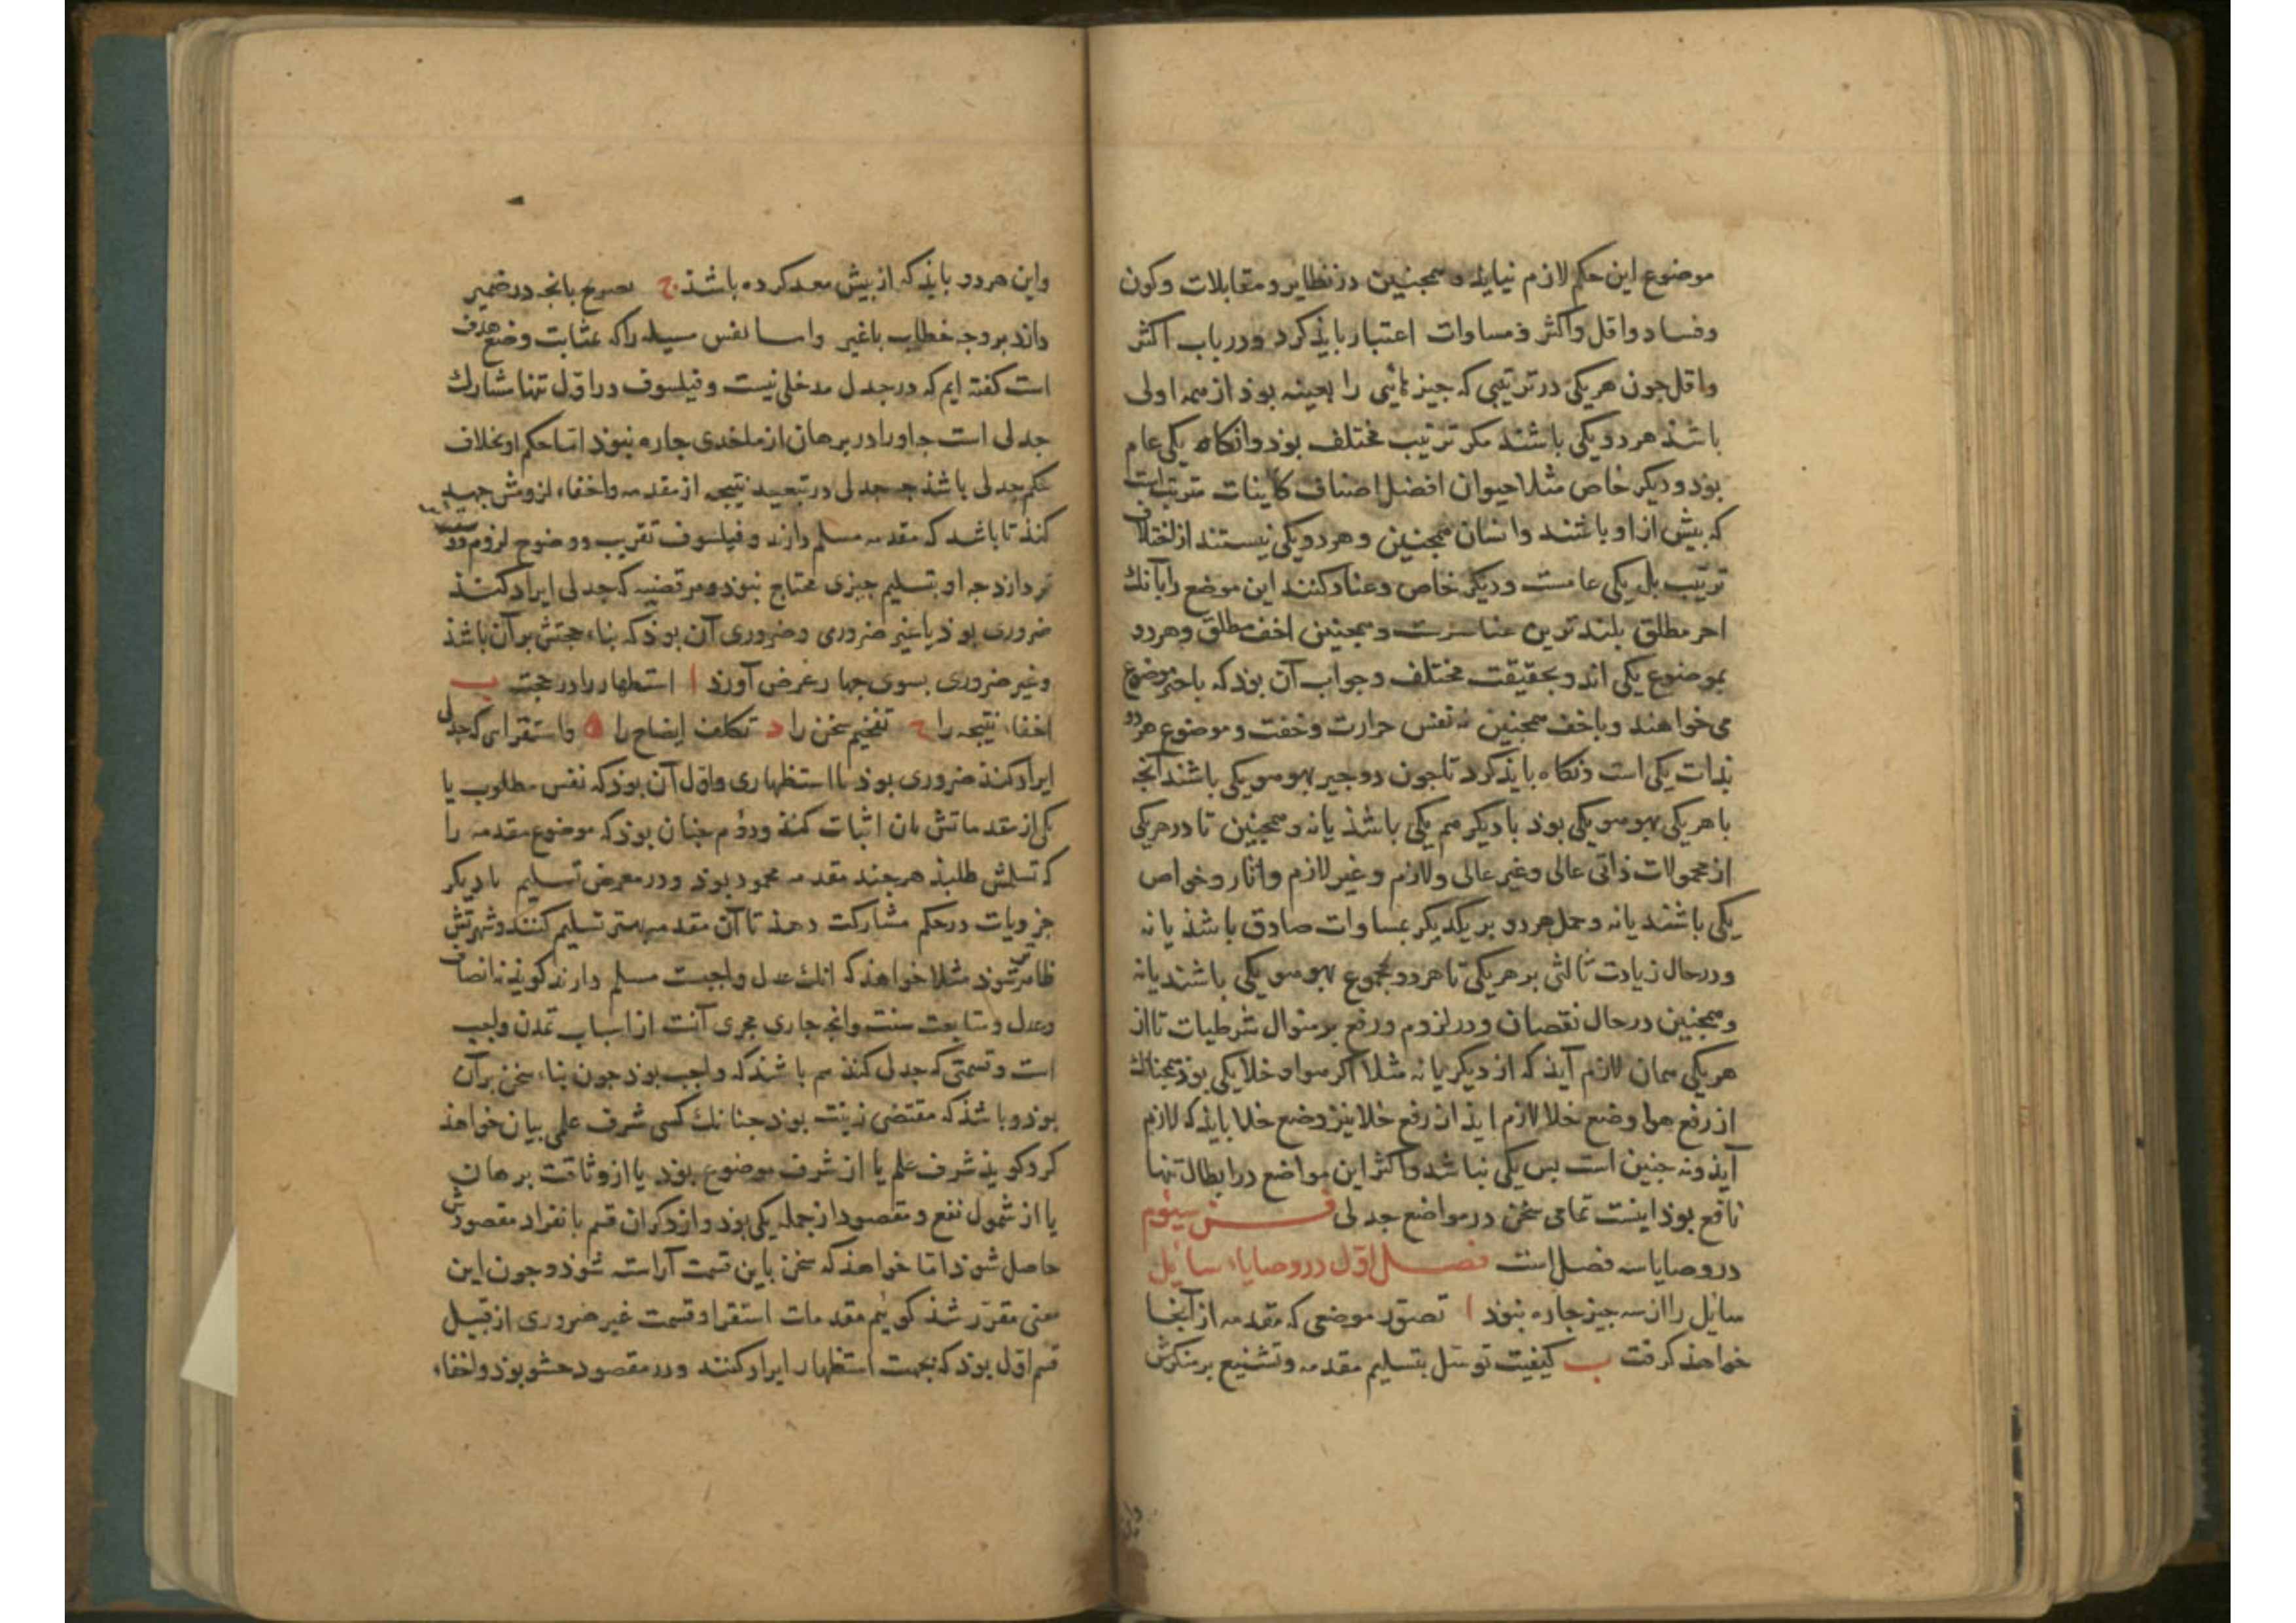 موضوع این حکم لازم نیاید و همچنین در نظایر و متقابلات و کون
و فساد و اقل و اکثر و مساوات اعتبار باید کرد و در باب اکثر
و اقل جون هر یکی در ترتیبی که جیز ثانی را بعینه بوذ از همه اولی
باشند هر دو یکی باشند مکر ترتیب مختلف بوذ وانکاه یکی عام
بوذ و دیکر خاص مثلا حیوان افضل اصناف کاینات مترتب است
که بیش از او باشند و انسان همجنین و هر دو یکی نیستند از اختلاف
ترتیب بل یکی عامست و دیکر خاص و عناد کنند این موضع را بآنك
احر مطلق بلندترین عناصرست و همجنین اخف مطلق و هر دو
بموضوع یکی اند و بحقیقت مختلف و جواب آن بوذ که باحر موضوع
می خواهند و باخف همجنین نه نفس حرارت و خفت و موضوع هر دو
بذات یکی است و نکاه بایذ کرد تا جون دو جیز بهوهو یکی باشند آنجه
با هر یکی بهوهو یکی بوذ با دیکر هم یکی باشذ یا نه و همجنین تا در هر یکی
از محمولات ذاتی عالی و غیر عالی و لازم و غیر لازم و اثار و خواص
یکی باشند یا نه و حمل هر دو بر یکدیکر بمساوات صادق باشذ یا نه
و در حال زیادت ثالثی بر هر یکی تا هر دو مجموع بهوهو یکی باشند یا نه
و همجنین در حال نقصان و در لزوم و رفع بر منوال شرطیات تا از
هر یکی همان لازم آیذ که از دیکر یا نه مثلا اکر هوا و خلا یکی بوذ همجنانك
از رفع هوا وضع خلا لازم ایذ از رفع خلا نیز وضع خلا بایذ که لازم
آیذ و نه جنین است بس یکی نباشد و اکثر این مواضع در ابطال تنها
نافع بوذ اینست تمامی سخن در مواضع جدلی فن سیوم
در وصایا سه فصل است فصل اول در وصایاء سایل
سایل را از سه جیز جاره نبوذ ا تصور موضعی که مقدمه از آنجا
خواهذ کرفت ب کیفیت توسل بتسلیم مقدمه و تشنیع بر منکرش
واین
واین هر دو بایذ که از بیش معد کرده باشذ ج تصریح بانجه در ضمیر
دارد بر وجه خطاب با غیر و اما نفس مسیله را که بمثابت وضع هدف
است کفته ایم که در جدل مدخلی نیست و فیلسوف در اول تنها مشارك
جدلی است جه او را در برهان از ماخذی جاره نبوذ اما حکم او بخلاف
حکم جدلی باشذ جه جدلی در تبعید نتیجه از مقدمه و اخفاء لزومش جهد
کنذ تا باشد که مقدمه مسلم دارند و فیلسوف تقریب و وضوح لزوم
جه او بتسلیم جیزی محتاج نبوذ و هر قضیه که جدلی ایراد کنذ
ضروری بوذ یا غیر ضروری و ضروری آن بوذ که بناء حجتش بر آن باشذ
و غیر ضروری بسوی جهار غرض آورذ ا استظهار را در حجت ب
اخفاء نتیجه را ج تفخیم سخن را د تکلف ایضاح را ه و استقرا ای که جدلی
ایراد کنذ ضروری بوذ یا استظهاری و اول آن بوذ که نفس مطلوب یا
یکی از مقدماتش بان اثبات کنذ و دوم جنان بوذ که موضوع مقدمه را
که تسلمش طلبذ هر جند مقدمه محمود بوذ و در معرض تسلیم با دیکر
جزویات در حکم مشارکت دهذ تا آن مقدمه بهتر تسلیم کنند و شهرتش
ظاهرتر شوذ مثلا خواهذ که انك عدل واجبست مسلم دارند کویذ نه انصاف
و عدل و متابعت سنت و انجه جاری مجری آنست از اسباب تمدن واجب
است و قسمتی که جدلی کنذ هم باشذ که واجب بوذ جون بناء سخن بر آن
بوذ و باشذ که مقتضی زینت بوذ جنانك کسی شرف علمی بیان خواهذ
کرد کویذ شرف علم یا از شرف موضوع بوذ یا از وثاقت برهان
یا از شمول نفع و مقصود از جمله یکی بوذ و از ذکر ان قسم بانفراد مقصودش
حاصل شوذ اما خواهذ که سخن باین قسمت آراسته شوذ و جون این
معنی مقرر شذ کوئیم مقدمات استقرا و قسمت غیر ضروری از قبیل
قسم اول بوذ که بجهت استظهار ایراد کنند و در مقصود حشو بوذ و اخفاء